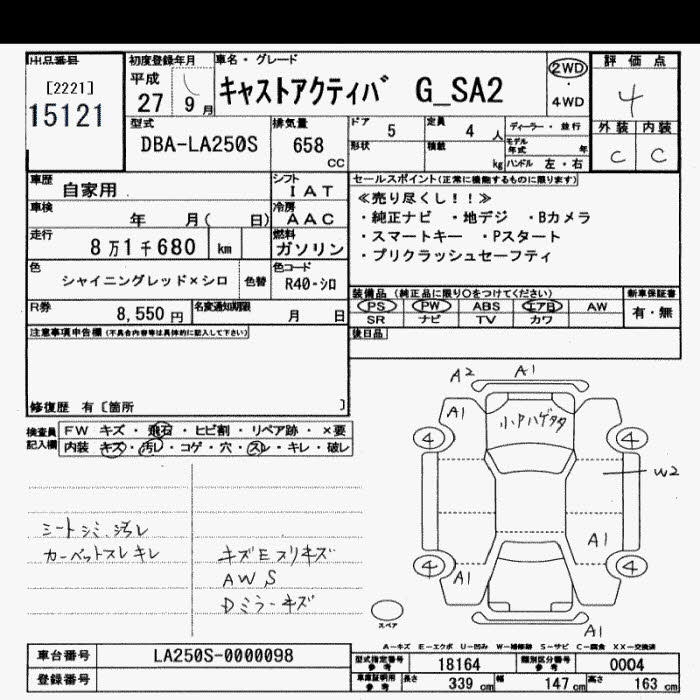 出品番号
[2221]
15121
初度登録年月
平成
27 9 月
車名・グレード
キャストアクティバ G_SA2
2WD
・
4WD
評価点
4
外装 内装
C C
型式
DBA-LA250S
排気量
658
cc
ドア 5
定員 4 人
形状
積載 kg
ディーラー・並行
モデル年式 年
ハンドル 左・右
車歴
自家用
シフト
IAT
車検
年 月( 日)
冷房
AAC
走行
8万1千680 km
燃料
ガソリン
色
シャイニングレッド×シロ
色替
色コード
R40-シロ
R券
8,550 円
名変通知期限
月 日
セールスポイント(正常に機能するものに限ります)
≪売り尽くし!!≫
・純正ナビ ・地デジ ・Bカメラ
・スマートキー ・Pスタート
・プリクラッシュセーフティ
装備品 (純正品に限り○をつけてください)
PS PW ABS エアB AW
SR ナビ TV カワ
新車保証書
有・無
後日品
注意事項申告欄(不具合内容等は具体的に記入して下さい)
修復歴 有〔箇所 〕
検査員
記入欄
FW キズ・飛石・ヒビ割・リペア跡・×要
内装 キズ・汚レ・コゲ・穴・スレ・キレ・破レ
シートシミ、汚レ
カーペットスレキレ
キズEスリキズ
AWS
Dミラーキズ
A2 A1
A1
小中ハゲタタ
4 4
W2
A1
4 4
A1
A1
スペア
A-キズ E-エクボ U-凹み W-補修跡 S-サビ C-腐食 XX-交換済
車台番号
LA250S-0000098
登録番号
型式指定番号
参考
18164
類別区分番号
参考
0004
車庫証明用
参考
長さ 339 cm
幅 147 cm
高さ 163 cm